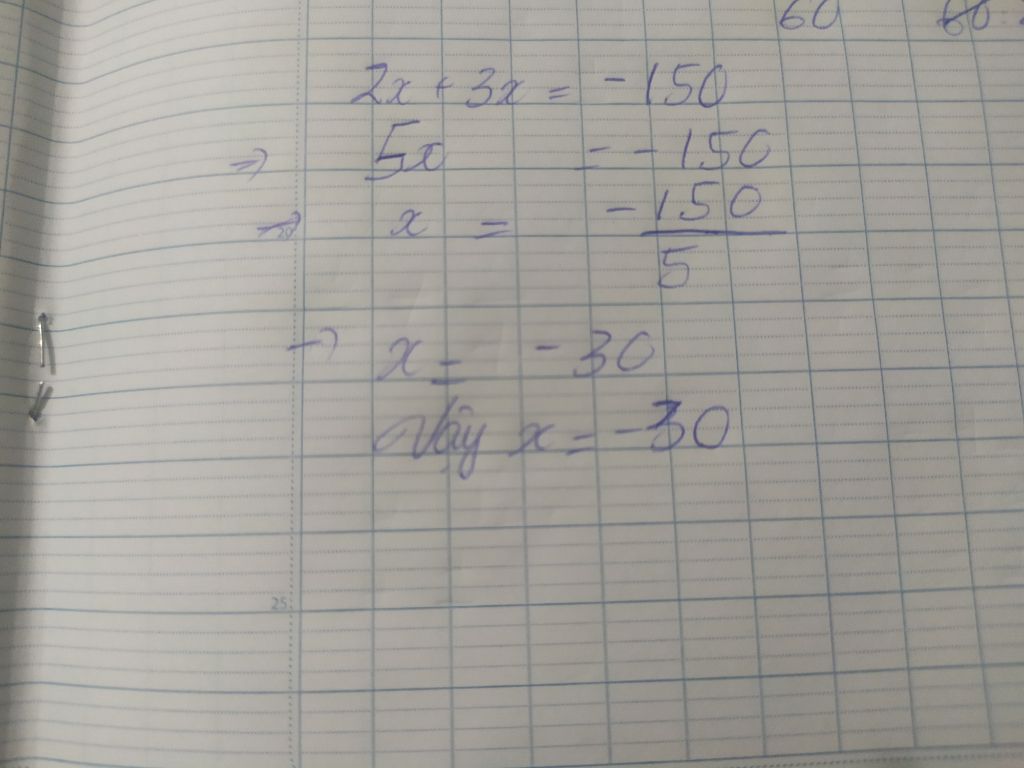 60 60
2x + 3x = -150
⇒ 5x = -150
⇒ x = -150/5
→ x = -30
Vậy x = -30
25